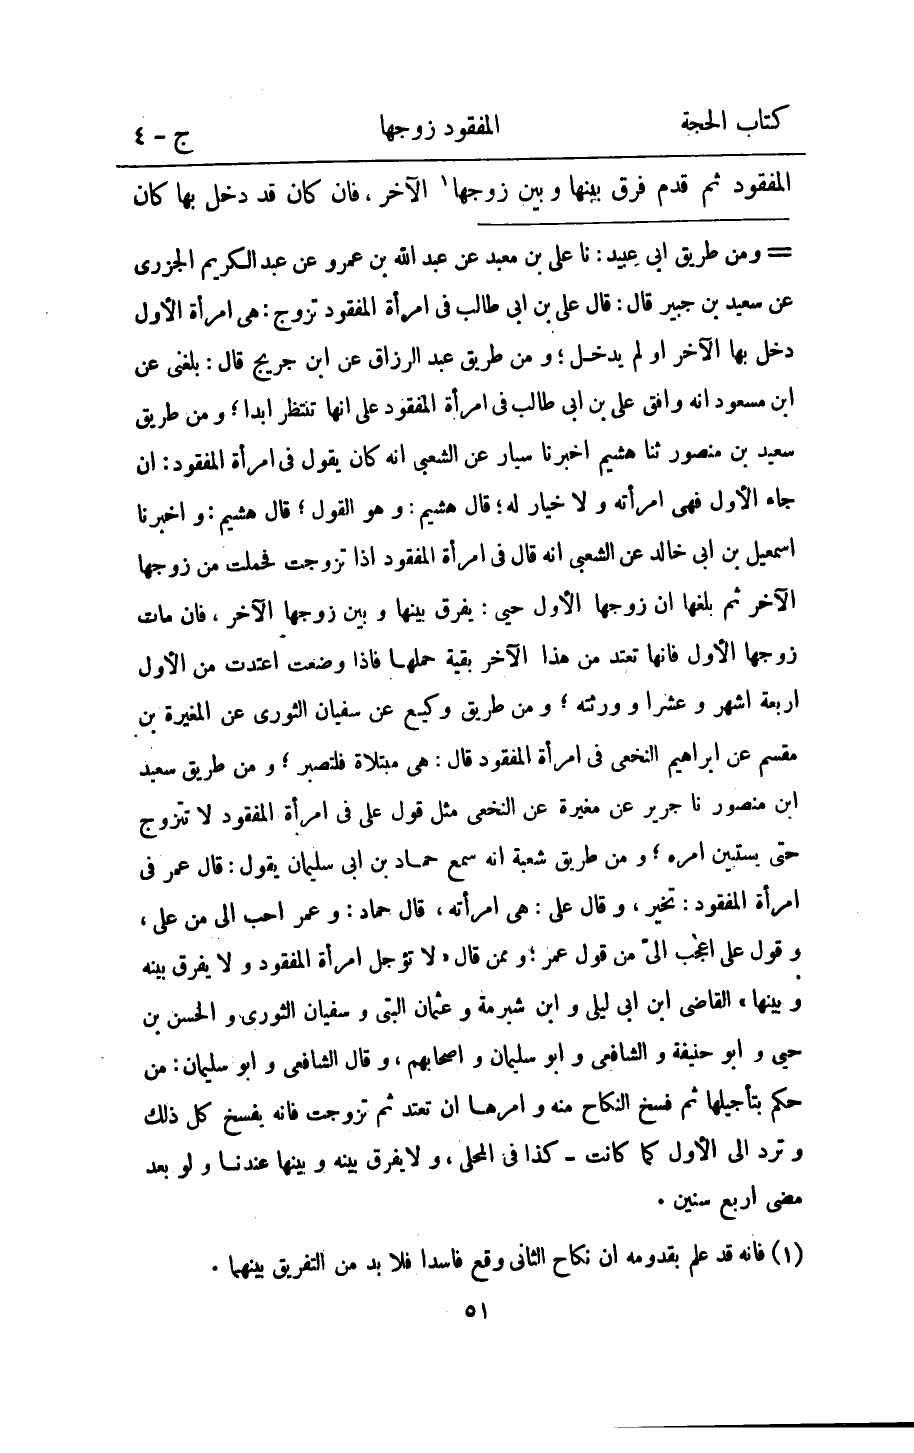 كتاب الحجة المفقود زوجها ج - ٤
المفقود ثم قدم فرق بينها و بين زوجها١ الآخر ، فان كان قد دخل بها كان
= ومن طريق ابى عبيد : نا على بن معبد عن عبد الله بن عمرو عن عبد الكريم الجزرى
عن سعيد بن جبير قال : قال على بن ابى طالب فى امرأة المفقود تزوج : هى امرأة الأول
دخل بها الآخر او لم يدخل ؛ و من طريق عبد الرزاق عن ابن جريج قال : بلغنى عن
ابن مسعود انه وافق على بن ابى طالب فى امرأة المفقود على انها تنتظر ابدا ؛ و من طريق
سعيد بن منصور ثنا هشيم اخبرنا سيار عن الشعبى انه كان يقول فى امرأة المفقود : ان
جاء الأول فهى امرأته و لا خيار له ؛ قال هشيم : و هو القول ؛ قال هشيم : و اخبرنا
اسمعيل بن ابى خالد عن الشعبى انه قال فى امرأة المفقود اذا تزوجت فحملت من زوجها
الآخر ثم بلغها ان زوجها الأول حيى : يفرق بينها و بين زوجها الآخر ، فان مات
زوجها الأول فانها تعتد من هذا الآخر بقية حملها فاذا وضعت اعتدت من الأول
اربعة اشهر و عشرا و ورثته ؛ و من طريق وكيع عن سفيان الثورى عن المغيرة بن
مقسم عن ابراهيم النخعى فى امرأة المفقود قال : هى مبتلاة فلتصبر ؛ و من طريق سعيد
ابن منصور نا جرير عن مغيرة عن النخعى مثل قول على فى امرأة المفقود لا تتزوج
حتى يستبين امره ؛ و من طريق شعبة انه سمع حماد بن ابى سليمان يقول : قال عمر فى
امرأة المفقود : تخير ، و قال على : هى امرأته ، قال حماد : و عمر احب الى من على ،
و قول على اعجب الىّ من قول عمر ؛ و ممن قال « لا تؤجل امرأة المفقود و لا يفرق بينه
و بينها » القاضى ابن ابى ليلى و ابن شبرمة و عثمان البتى و سفيان الثورى و الحسن بن
حيى و ابو حنيفة و الشافعى و ابو سليمان و اصحابهم ، و قال الشافعى و ابو سليمان : من
حكم بتأجيلها ثم فسخ النكاح منه و امرها ان تعتد ثم تزوجت فانه يفسخ كل ذلك
و ترد الى الأول كما كانت - كذا فى المحلى ، و لا يفرق بينه و بينها عندنا و لو بعد
مضى اربع سنين .
(١) فانه قد علم بقدومه ان نكاح الثانى وقع فاسدا فلا بد من التفريق بينهما .
٥١